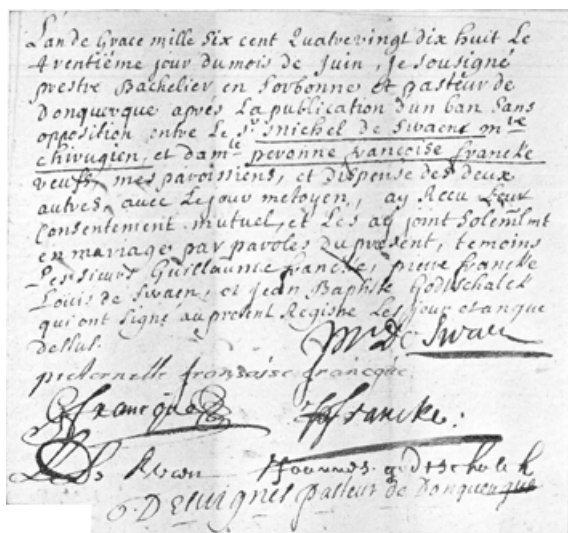 L'an de Grace mille Six cent Quatrevingt dix huit Le
trentiéme jour du mois de Juin, Je sousigné
prestre Bachelier en Sorbonne et pasteur de
Donquerque apres La publication d'un ban sans
opposition entre Le Sr. michel de Swaene mtre
chirugien, et damle peronne francoise francke
veufs, mes paroissiens, et dispense des deux
autres, avec Le jour metoyen, ay Receu Leur
Consentement mutuel, et Les ay joint Solemlmt
en mariage par paroles du present, temoins
Les sieurs Guillaume francke, pierre francke
Louis de Swaen, et Jean Baptiste Godtschalck
qui ont signé au present Registre Les jour et an que
dessus.
M De Swaen
pieternelle fransoise francque
francque
francke.
De Swaen
Joannes godtschalck
Desvignes pasteur de Donquerque